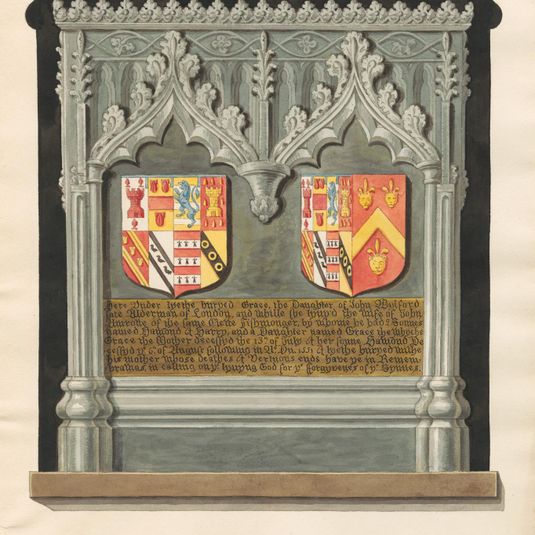 Here Under lyethe buryed Grace, the Daughter of John Wylford
late Alderman of London, and whilse she lyved the wife of John
of the same Citie Fishmonger, by whome he had 2 Sonnes
named Hamond & Harry, and a Daughter named Grace the whole
Grace the Mother decessyd the 13th of July & her sonne Hamond De
cessyd ye 6 of August following in Ao Dn 1551 & lyethe buryed withe
his mother whose deathes & Vertuous ends have ye in Remem
brannas in calling on ye lyvyng God for ye forgyvenes of yr Synnes.